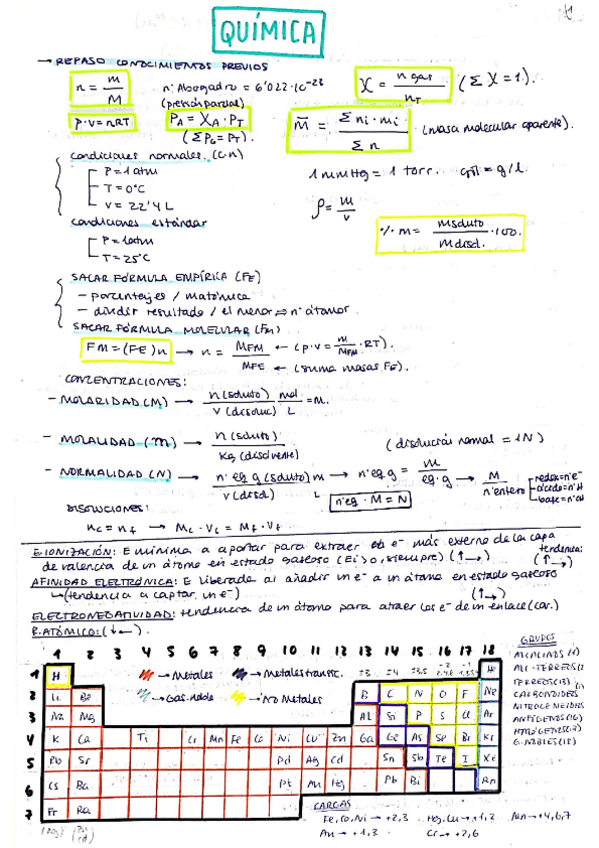 QUÍMICA
→ REPASO CONOCIMIENTOS PREVIOS
n = m/M
nº Abogadro = 6'022·10⁻²³
X = n gas / nT (ΣX = 1).
(presión parcial)
P·V = nRT
PA = XA · PT
(ΣPc = PT).
M̄ = Σ ni · mi / Σ n (masa molecular aparente).
condiciones normales (cn)
P = 1 atm
T = 0°C
V = 22'4 L
1 mmHg = 1 torr.
g/l.
ρ = m/v
condiciones estándar
P = 1 atm
T = 25°C
% m = m sduto / m disol. · 100.
SACAR FÓRMULA EMPÍRICA (FE)
- porcentajes / matómica
- dividir resultado / el menor ⇒ nº átomos.
SACAR FÓRMULA MOLECULAR (Fm)
FM = (FE)n → n = MFM / MFE ← (P·V = m/MFM · RT).
← (suma masas FE).
CONCENTRACIONES:
- MOLARIDAD (M) → n (sduto) / V (disoluc) mol/L = M.
- MOLALIDAD (m) → n (sduto) / Kg (disolvente)
(disolución normal = 1N)
- NORMALIDAD (N) → nº eq g (sduto) / V (disol) m/L → nº eq. g = m / eq. g → M / n'entero
redox = nº e⁻
ácido = nº H
base = nº OH
nº eq · M = N
DISOLUCIONES:
nc = nf → Mc · Vc = Mf · Vf
E. IONIZACIÓN: E mínima a aportar para extraer e⁻ más externo de la capa
de valencia de un átomo en estado gaseoso (Ei > 0, siempre) (↑→)
tendencia:
(↑→)
AFINIDAD ELECTRÓNICA: E liberada al añadir un e⁻ a un átomo en estado gaseoso
↳ (tendencia a captar un e⁻) (↑→)
ELECTRONEGATIVIDAD: tendencia de un átomo para atraer los e⁻ de un enlace (cov.)
R. ATÓMICO: (↓←).
1 2 3 4 5 6 7 8 9 10 11 12 13 14 15 16 17 18
GRUPOS
1 H → Metales → Metales transic. +3 ±4 He
ALCALINOS (1)
2 Li Be → Gas noble → No Metales B C N O F Ne
ALC-TERREOS (2)
TERREOS (13)
3 Na Mg Al Si P S Cl Ar
CARBONOIDES
NITROGENOIDEOS
4 K Ca Ti Cr Mn Fe Co Ni Cu Zn Ga Ge As Se Br Kr
ANFÍGENOS (16)
HALÓGENOS
G. NOBLES (18)
5 Rb Sr Pd Ag Cd Sn Sb Te I Xe
6 Cs Ba Pt Au Hg Pb Bi Rn
7 Fr Ra
CARGAS
Fe, Co, Ni → +2,3 Hg, Cu → +1,2 Mn → +4,6,7
Au → +1,3 Cr → +2,6